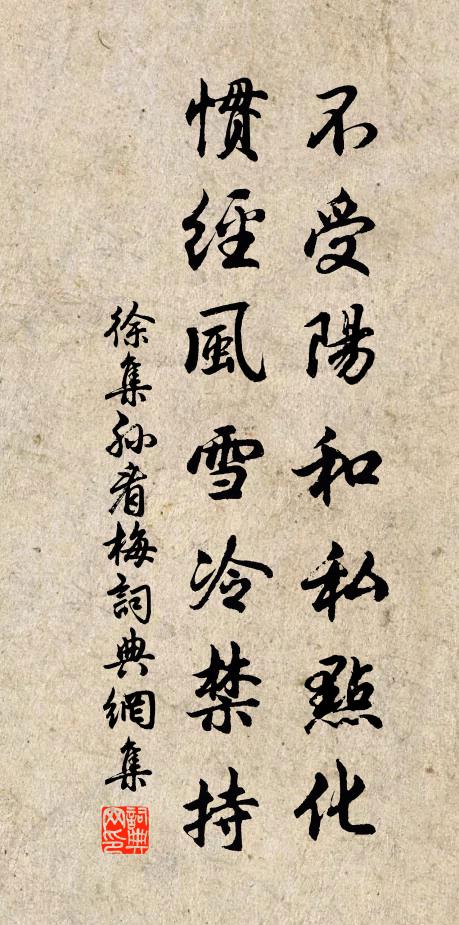 不受陽和私點化
慣經風雪冷禁持
徐集孫看梅詞典網集
詞典網印